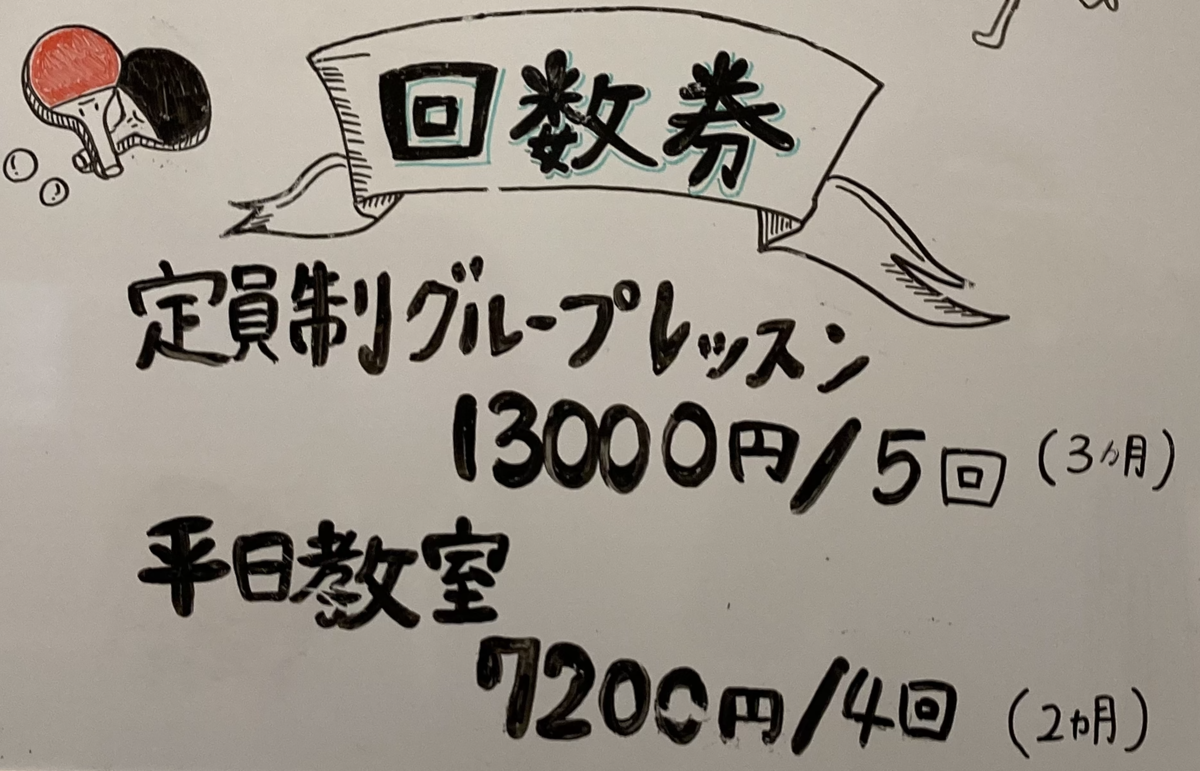 回数券
定員制グループレッスン
13000円/5回 (3ヶ月)
平日教室
7200円/4回 (2ヵ月)